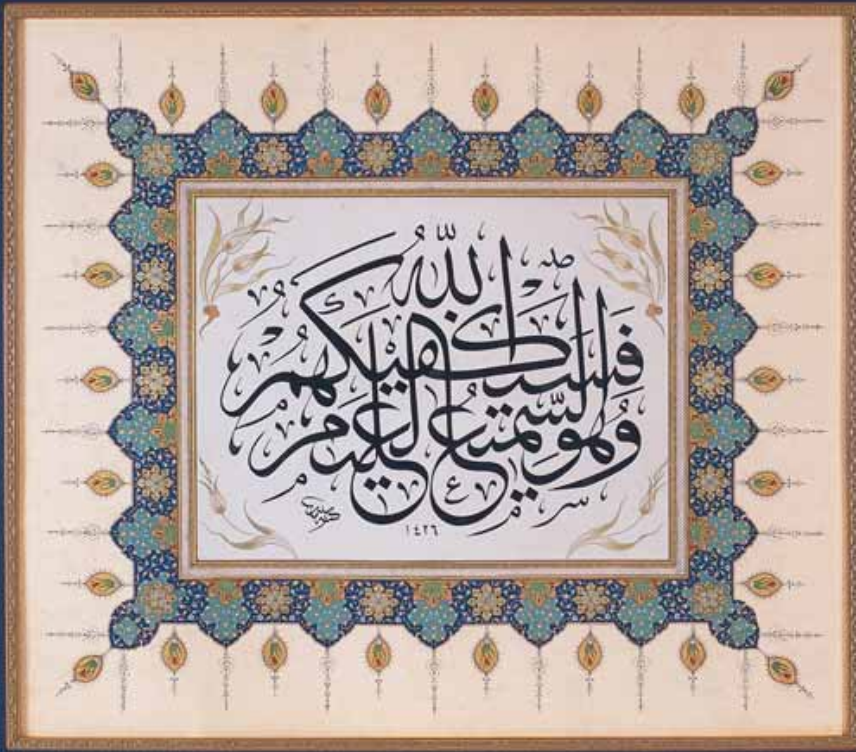 فَسَيَكْفِيكَهُمُ اللّٰهُ
وَهُوَ السَّمِيعُ الْعَلِيمُ
١٤٢٦